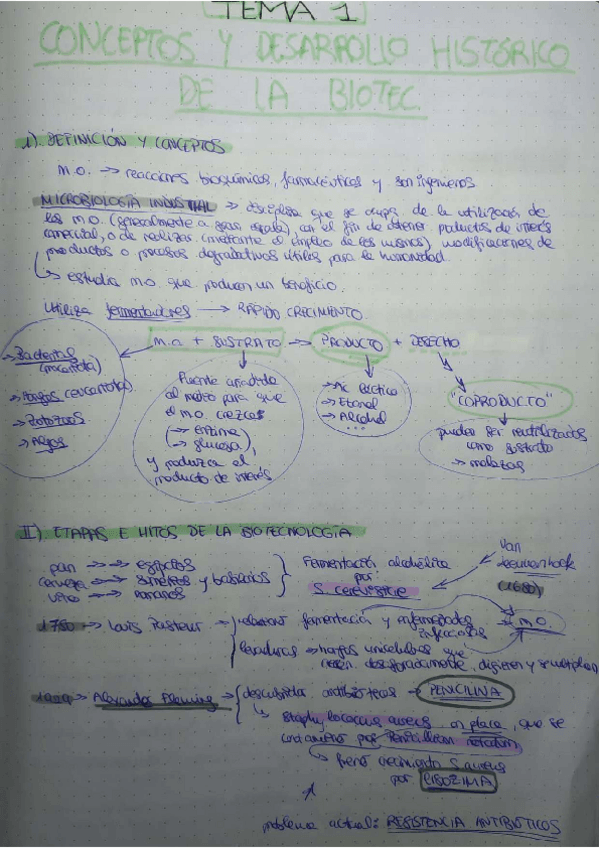 TEMA 1
CONCEPTOS Y DESARROLLO HISTÓRICO
DE LA BIOTEC.
I) DEFINICIÓN Y CONCEPTOS
m.o. → reacciones bioquímicas, farmacéuticos y son ingenieros
MICROBIOLOGÍA INDUSTRIAL → disciplina que se ocupa de la utilización de
los m.o. (generalmente a gran escala), con el fin de obtener productos de interés
comercial, o de realizar (mediante el empleo de los mismos) modificaciones de
productos o procesos degradativos útiles para la humanidad.
↳ estudia m.o. que producen un beneficio.
Utiliza fermentadores → RÁPIDO CRECIMIENTO
m.o. + SUSTRATO → PRODUCTO + DESECHO
→ Bacterias
(procariota)
→ Hongos (eucariota)
→ Protozoos
→ Algas
Fuente añadida
al medio para que
el m.o. crezca
(→ enzima
→ glucosa),
y produzca el
producto de interés
→ Ác. láctico
→ Etanol
→ Alcohol
...
"COPRODUCTO"
pueden ser reutilizados
como sustrato
→ melazas
II) ETAPAS E HITOS DE LA BIOTECNOLOGÍA
pan → egipcios
cerveza → sumerios y babilonios
vino → romanos
Fermentación alcohólica
por
S. cerevisiae
Van
Leeuwenhoek
(1680)
→ Louis Pasteur → relacionó fermentación y enfermedades
infecciosas
→ m.o.
levaduras → hongos unicelulares que
crecen desaforadamente, digieren y se multiplican
→ Alexander Fleming → descubrida antibióticos → PENICILINA
↳ Staphylococcus aureus en placa, que se
contaminó por Penicillium notatum
↳ frenó crecimiento S. aureus
por LISOZIMA
problema actual: RESISTENCIA ANTIBIÓTICOS